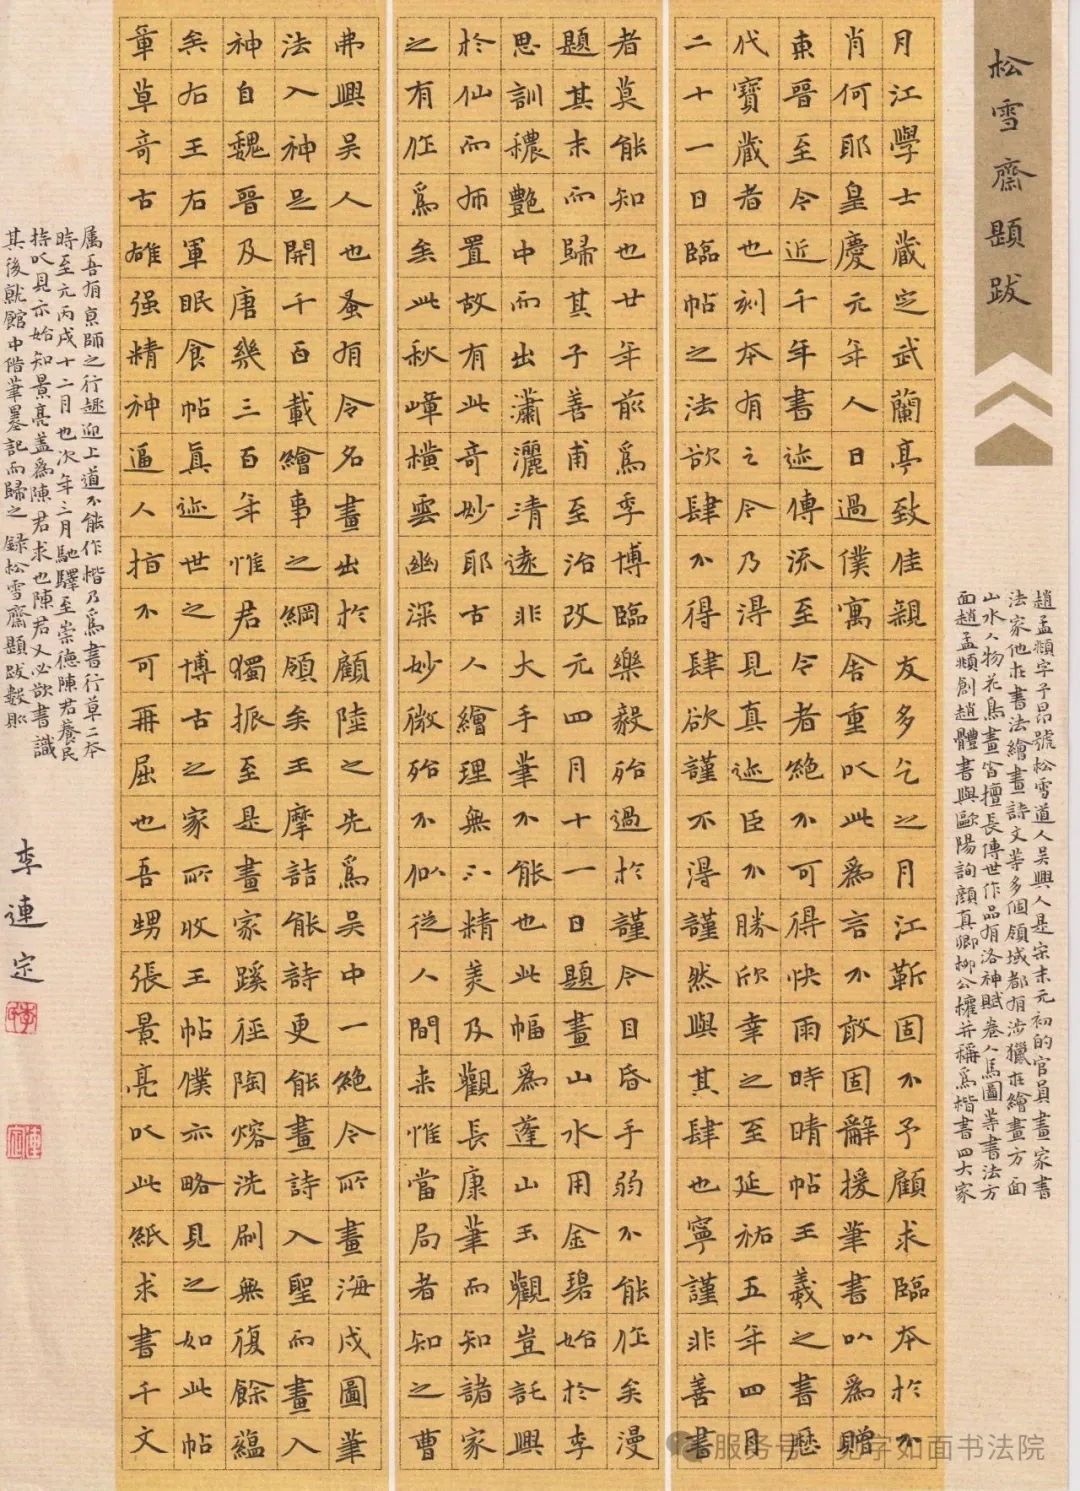 松雪齋題跋
趙孟頫字子昂號松雪道人吳興人是宋末元初的官員畫家書
法家他在書法繪畫詩文等多個領域都有涉獵在繪畫方面
山水人物花鳥畫皆擅長傳世作品有洛神賦卷人馬圖等書法方
面趙孟頫創趙體書與歐陽詢顏真卿柳公權并稱爲楷書四大家
月江學士藏定武蘭亭致佳親友多乞之月江靳固不予顧求臨本於不
肖何耶皇慶元年人日過僕寓舍重以此爲言不敢固辭援筆書以爲贈
東晉至今近千年書迹傳流至今者絶不可得快雨時晴帖王羲之書歷
代寶藏者也刻本有之今乃得見真迹臣不勝欣幸之至延祐五年四月
二十一日臨帖之法欲肆不得肆欲謹不得謹然與其肆也寧謹非善書
者莫能知也廿年前爲季博臨樂毅殆過於謹今目昏手弱不能作矣漫
題其末而歸其子善甫至治改元四月十一日題畫山水用金碧始於李
思訓穠艷中而出瀟灑清遠非大手筆不能也此幅爲蓬山玉觀豈託興
於仙而置故有此奇妙耶古人繪理無不精美及觀長康筆而知諸家
之有作爲矣此秋嶂橫雲幽深妙微殆不似從人間來惟當局者知之曹
弗興吳人也蚤有令名畫出於顧陸之先爲吳中一絶今所畫海戍圖筆
法入神足開千百載繪事之綱領矣王摩詰能詩更能畫詩入聖而畫入
神自魏晉及唐幾三百年惟君獨振至是畫家蹊徑陶熔洗刷無復餘蘊
矣右王右軍眠食帖真迹世之博古之家所收王帖僕亦略見之如此帖
章草奇古雄强精神逼人指不可再屈也吾甥張景亮以此紙求書千文
屬吾有京師之行趣迎上道不能作楷乃爲書行草二本
時至元丙戌十二月也次年三月馳驛至崇德陳君養民
持以見示始知景亮蓋爲陳君求也陳君又必欲書識
其後就館中借筆墨記而歸之 錄松雪齋題跋數則
李連定
服务号 · 见字如面书法院